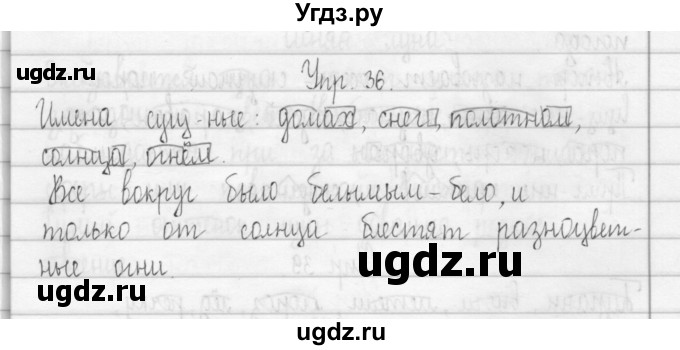 Угдз.ру
ugdz.ru
Упр. 36.
ugdz.ru
Имена сущ-ные: домах, снег, полотном,
солнца, огнём.
ugdz.ru
Все вокруг было белым-бело, и
только от солнца блестят разноцвет-
ные огни.
ugdz.ru
ugdz.ru
ugdz.ru